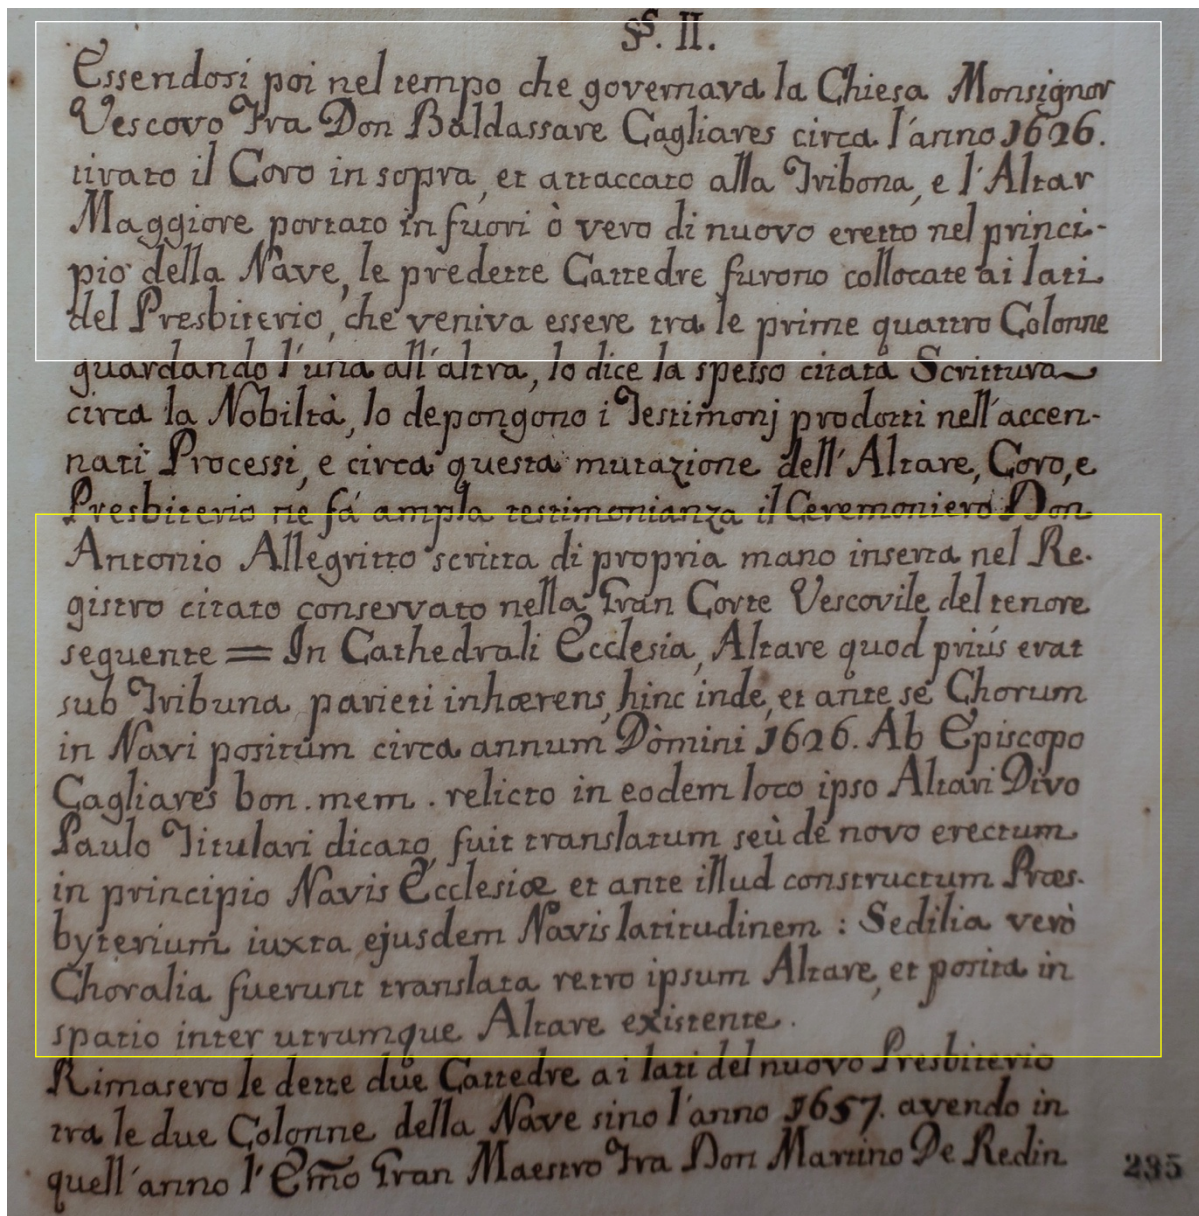 §§. II.
Essendosi poi nel tempo che governava la Chiesa Monsignor
Vescovo Fra Don Baldassare Cagliares circa l'anno 1626.
tirato il Coro in sopra, et attaccato alla Tribona, e l'Altar
Maggiore portato in fuori ò vero di nuovo eretto nel princi-
pio della Nave, le predette Cattedre furono collocate ai lati
del Presbiterio, che veniva essere tra le prime quattro Colonne
guardando l'una all'altra, lo dice la spesso citata Scrittura
circa la Nobiltà, lo depongono i Testimonj prodotti nell'accen-
nati Processi, e circa questa mutazione dell'Altare, Coro, e
Presbiterio ne fá ampla testimonianza il Ceremoniero Don
Antonio Allegritto scritta di propria mano inserta nel Re-
gistro citato conservato nella Gran Corte Vescovile del tenore
seguente = In Cathedrali Ecclesia, Altare quod priús erat
sub Tribuna parieti inhærens, hinc inde, et ante se Chorum
in Navi positum circa annum Dòmini 1626. Ab Episcopo
Cagliares bon. mem. relicto in eodem loco ipso Altari Divo
Paulo Titulari dicato, fuit translatum seù de novo erectum
in principio Navis Ecclesiæ et ante illud constructum Præs-
byterium iuxta ejusdem Navis latitudinem : Sedilia verò
Choralia fuerunt translata retro ipsum Altare, et posita in
spatio inter utrumque Altare existente.
Rimasero le dette due Cattedre ai lati del nuovo Presbiterio
tra le due Colonne della Nave sino l'anno 1657. avendo in
quell'anno l'Emo Gran Maestro Fra Don Martino De Redin
235